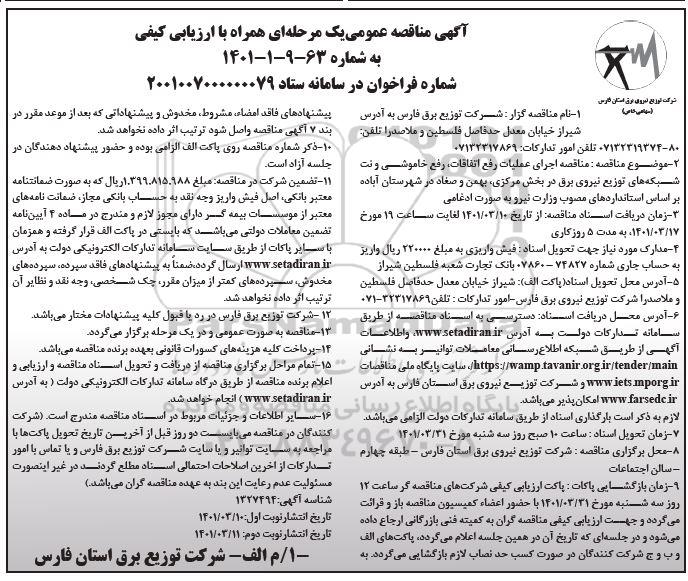 آگهی مناقصه عمومی یک مرحله‌ای همراه با ارزیابی کیفی
به شماره ۶۳-۹-۱-۱۴۰۱
شماره فراخوان در سامانه ستاد ۲۰۰۱۰۰۷۰۰۰۰۰۰۰۷۹
شرکت توزیع نیروی برق استان فارس
(سهامی خاص)
۱-نام مناقصه گزار : شرکت توزیع برق فارس به آدرس
شیراز خیابان معدل حدفاصل فلسطین و ملاصدرا تلفن:
۸۰-۰۷۱۳۲۳۱۹۳۷۴ تلفن امور تدارکات: ۰۷۱۳۲۳۱۷۸۶۹
۲-موضوع مناقصه : مناقصه اجرای عملیات رفع اتفاقات، رفع خاموشی و نت
شبکه‌های توزیع نیروی برق در بخش مرکزی، بهمن و صغاد در شهرستان آباده
بر اساس استانداردهای مصوب وزارت نیرو به صورت ادغامی
۳-زمان دریافت اسناد مناقصه: از تاریخ ۱۴۰۱/۰۳/۱۰ لغایت ساعت ۱۹ مورخ
۱۴۰۱/۰۳/۱۷، به مدت ۵ روز کاری
۴-مدارک مورد نیاز جهت تحویل اسناد : فیش واریزی به مبلغ ۲۲۰۰۰۰ ریال واریز
به حساب جاری شماره ۷۴۸۲۷-۰۷۸۶۰ بانک تجارت شعبه فلسطین شیراز
۵-آدرس محل تحویل اسناد(پاکت الف): شیراز خیابان معدل حدفاصل فلسطین
و ملاصدرا شرکت توزیع نیروی برق فارس-امور تدارکات : تلفن۳۲۳۱۷۸۶۹-۰۷۱
۶-آدرس محل دریافت اسناد: دسترسی به اسناد مناقصه از طریق
سامانه تدارکات دولت به آدرس www.setadiran.ir، واطلاعات
آگهی از طریق شبکه اطلاع‌رسانی معاملات توانیر به نشانی
https://wamp.tavanir.org.ir/tender/main/، سایت پایگاه ملی مناقصات
www.iets.mporg.ir و شرکت توزیع نیروی برق استان فارس به آدرس
www.farsedc.ir امکان‌پذیر می‌باشد.
لازم به ذکر است بارگذاری اسناد از طریق سامانه تدارکات دولت الزامی می‌باشد.
۷-زمان تحویل اسناد : ساعت ۱۰ صبح روز سه شنبه مورخ ۱۴۰۱/۰۳/۳۱
۸-محل برگزاری مناقصه : شرکت توزیع نیروی برق استان فارس – طبقه چهارم
–سالن اجتماعات
۹-زمان بازگشایی پاکات : پاکت ارزیابی کیفی شرکت‌های مناقصه گر ساعت ۱۲
روز سه شنبه مورخ ۱۴۰۱/۰۳/۳۱ با حضور اعضاء کمیسیون مناقصه باز و قرائت
می‌گردد و جهت ارزیابی کیفی مناقصه گران به کمیته فنی بازرگانی ارجاع داده
می‌شود و در جلسه‌ای که تاریخ آن در همین جلسه اعلام می‌گردد، پاکت‌های الف
و ب و ج شرکت کنندگان در صورت کسب حد نصاب لازم بازگشایی می‌گردد. به
پیشنهادهای فاقد امضاء، مشروط، مخدوش و پیشنهاداتی که بعد از موعد مقرر در
بند ۷ آگهی مناقصه واصل شود ترتیب اثر داده نخواهد شد.
۱۰-ذکر شماره مناقصه روی پاکت الف الزامی بوده و حضور پیشنهاد دهندگان در
جلسه آزاد است.
۱۱-تضمین شرکت در مناقصه: مبلغ ۱.۳۹۹.۸۱۵.۹۸۸ریال که به صورت ضمانتنامه
معتبر بانکی، اصل فیش واریز وجه نقد به حساب بانکی مجاز، ضمانت نامه‌های
معتبر از موسسات بیمه گر دارای مجوز لازم و مندرج در ماده ۴ آیین‌نامه
تضمین معاملات دولتی می‌باشد که بایستی در پاکت الف قرار گرفته و همزمان
با سایر پاکات از طریق سایت سامانه تدارکات الکترونیکی دولت به آدرس
www.setadiran.ir ارسال گردد،ضمناً به پیشنهادهای فاقد سپرده، سپرده‌های
مخدوش، سپرده‌های کمتر از میزان مقرر، چک شخصی، وجه نقد و نظایر آن
ترتیب اثر داده نخواهد شد.
۱۲-شرکت توزیع برق فارس در رد یا قبول کلیه پیشنهادات مختار می‌باشد.
۱۳-مناقصه به صورت عمومی و در یک مرحله برگزار می‌گردد.
۱۴-پرداخت کلیه هزینه‌های کسورات قانونی بعهده برنده مناقصه می‌باشد.
۱۵-تمام مراحل برگزاری مناقصه از دریافت و تحویل اسناد مناقصه و ارزیابی و
اعلام برنده مناقصه از طریق درگاه سامانه تدارکات الکترونیکی دولت ( به آدرس
www.setadiran.ir ) انجام خواهد شد.
۱۶-سایر اطلاعات و جزئیات مربوط در اسناد مناقصه مندرج است. (شرکت
کنندگان در مناقصه می‌بایست دو روز قبل از آخرین تاریخ تحویل پاکت‌ها با
مراجعه به سایت توانیر و یا سایت شرکت توزیع برق فارس و یا تماس با امور
تدارکات از آخرین اصلاحات احتمالی اسناد مطلع گردند در غیر اینصورت
مسئولیت عدم رعایت این بند به عهده مناقصه گران می‌باشد.)
شناسه آگهی:۱۳۲۷۴۹۴
تاریخ انتشارنوبت اول:۱۴۰۱/۰۳/۱۰
تاریخ انتشارنوبت دوم: ۱۴۰۱/۰۳/۱۱
۱/م الف– شرکت توزیع برق استان فارس